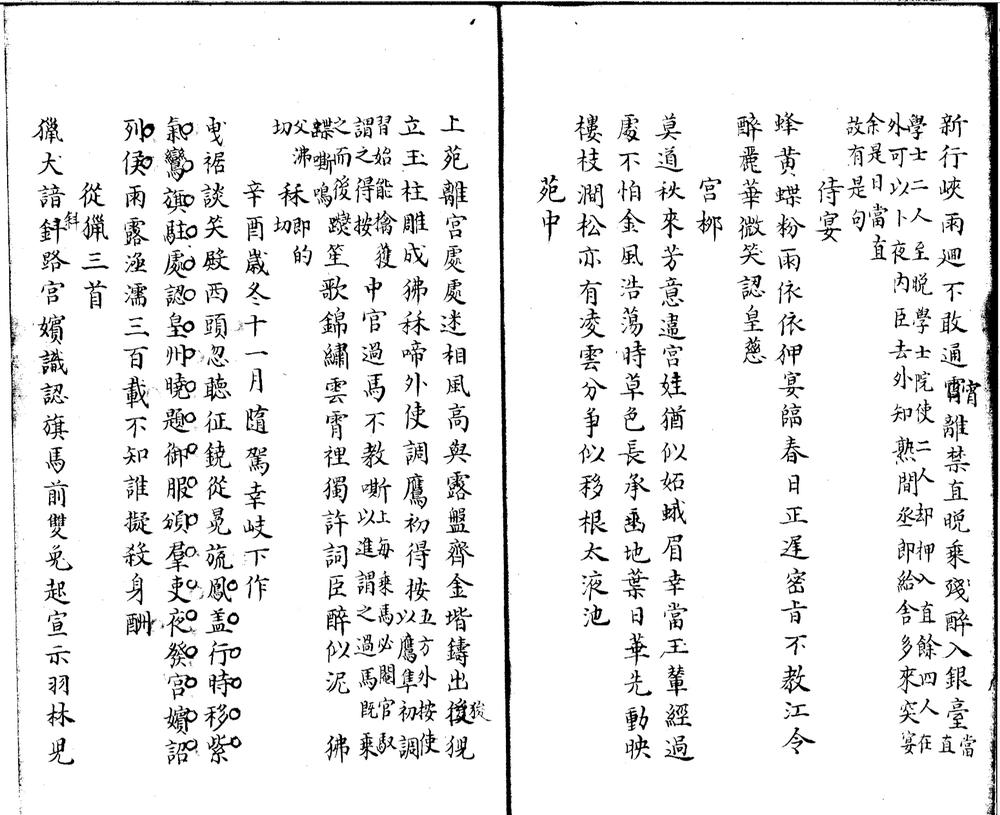 新行峽雨迴不敢通宵離禁直晚乘殘醉入銀臺當直
學士二人至晚學士院使二人却押入直餘四人在
外可以卜夜内臣去外知熟間丞郎給舍多來突宴
余是日當直
故有是句
侍宴
蜂黃蝶粉兩依依狎宴臨春日正遲密旨不教江令
醉麗華微笑認皇慈
宮柳
莫道秋來芳意違宮娃猶似妬蛾眉幸當玉輦經過
處不怕金風浩蕩時草色長承垂地葉日華先動映
樓枝澗松亦有凌雲分爭似移根太液池
苑中
上苑離宮處處迷相風高與露盤齊金堦鑄出狻猊
立玉柱雕成狒𥝖啼外使調鷹初得按五方外按使
以鷹隼初調
習始能擒獲
謂之得按
中官過馬不教嘶上每乘馬必閹官馭
以進謂之過馬既乘
之而後躞
蝶嘶鳴
笙歌錦繡雲霄裡獨許詞臣醉似泥
狒
父沸
切
𥝖即的
切
辛酉歲冬十一月隨駕幸岐下作
曳裾談笑殿西頭忽聽征鐃從冕旒鳳盖行時移紫
氣鸞旗駐處認皇州曉題御服頒羣吏夜發宮嬪詔
列侯雨露涵濡三百載不知誰擬殺身酬
從獵三首
獵犬諳斜路宮嬪識認旗馬前雙兔起宣示羽林兒